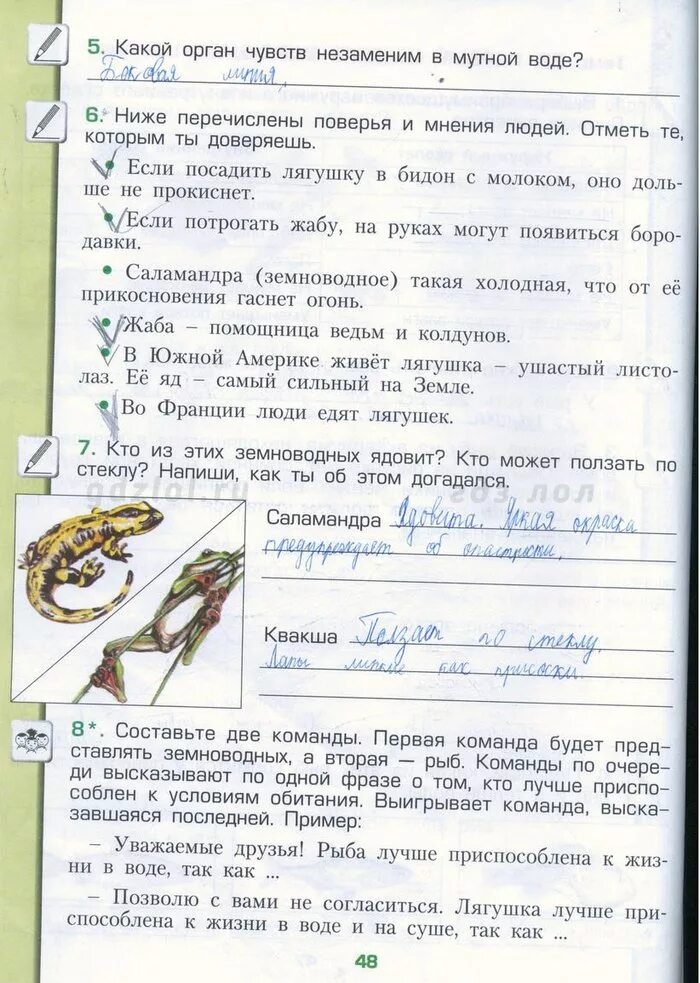 5. Какой орган чувств незаменим в мутной воде?
Боковая линия.
6. Ниже перечислены поверья и мнения людей. Отметь те,
которым ты доверяешь.
• Если посадить лягушку в бидон с молоком, оно доль-
ше не прокиснет.
• Если потрогать жабу, на руках могут появиться боро-
давки.
• Саламандра (земноводное) такая холодная, что от её
прикосновения гаснет огонь.
• Жаба – помощница ведьм и колдунов.
• В Южной Америке живёт лягушка – ушастый листо-
лаз. Её яд – самый сильный на Земле.
• Во Франции люди едят лягушек.
7. Кто из этих земноводных ядовит? Кто может ползать по
стеклу? Напиши, как ты об этом догадался.
gdzlol.ru
гдз лол
Саламандра Ядовита. Яркая окраска
предупреждает об опастности.
Квакша Ползает по стеклу.
Лапы липкие как присоски.
8*. Составьте две команды. Первая команда будет пред-
ставлять земноводных, а вторая — рыб. Команды по очере-
ди высказывают по одной фразе о том, кто лучше приспо-
соблен к условиям обитания. Выигрывает команда, выска-
завшаяся последней. Пример:
– Уважаемые друзья! Рыба лучше приспособлена к жиз-
ни в воде, так как ...
– Позволю с вами не согласиться. Лягушка лучше при-
способлена к жизни в воде и на суше, так как ...
48